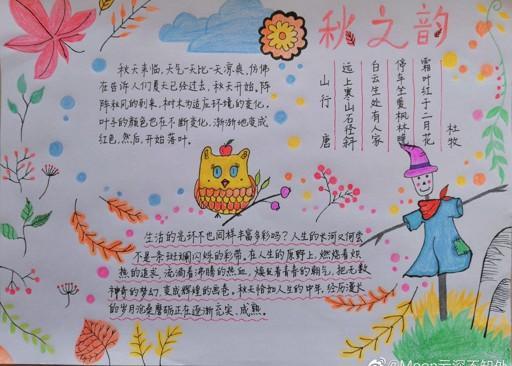 秋之韵
秋天来临,天气一天比一天凉爽,仿佛
在告诉人们夏天已经过去,秋天开始,阵
阵秋风的到来,树木为适应环境的变化,
叶子的颜色也在不断变化,渐渐地变成
红色,然后,开始落叶。
杜牧
霜叶红于二月花
停车坐爱枫林晚
白云生处有人家
远上寒山石径斜
山行 唐
生活的光环不也同样丰富多彩吗?人生的长河又何尝
不是条斑斓闪烁的彩带。在人生的原野上,燃烧着炽
热的追求,流淌着沸腾的热血,焕发着青春的朝气,把无数
神奇的梦幻,变成辉煌的画色。秋天恰如人生的中年,经历漫长
的岁月沧桑磨砺正在逐渐充实、成熟。
@Moon云深不知处